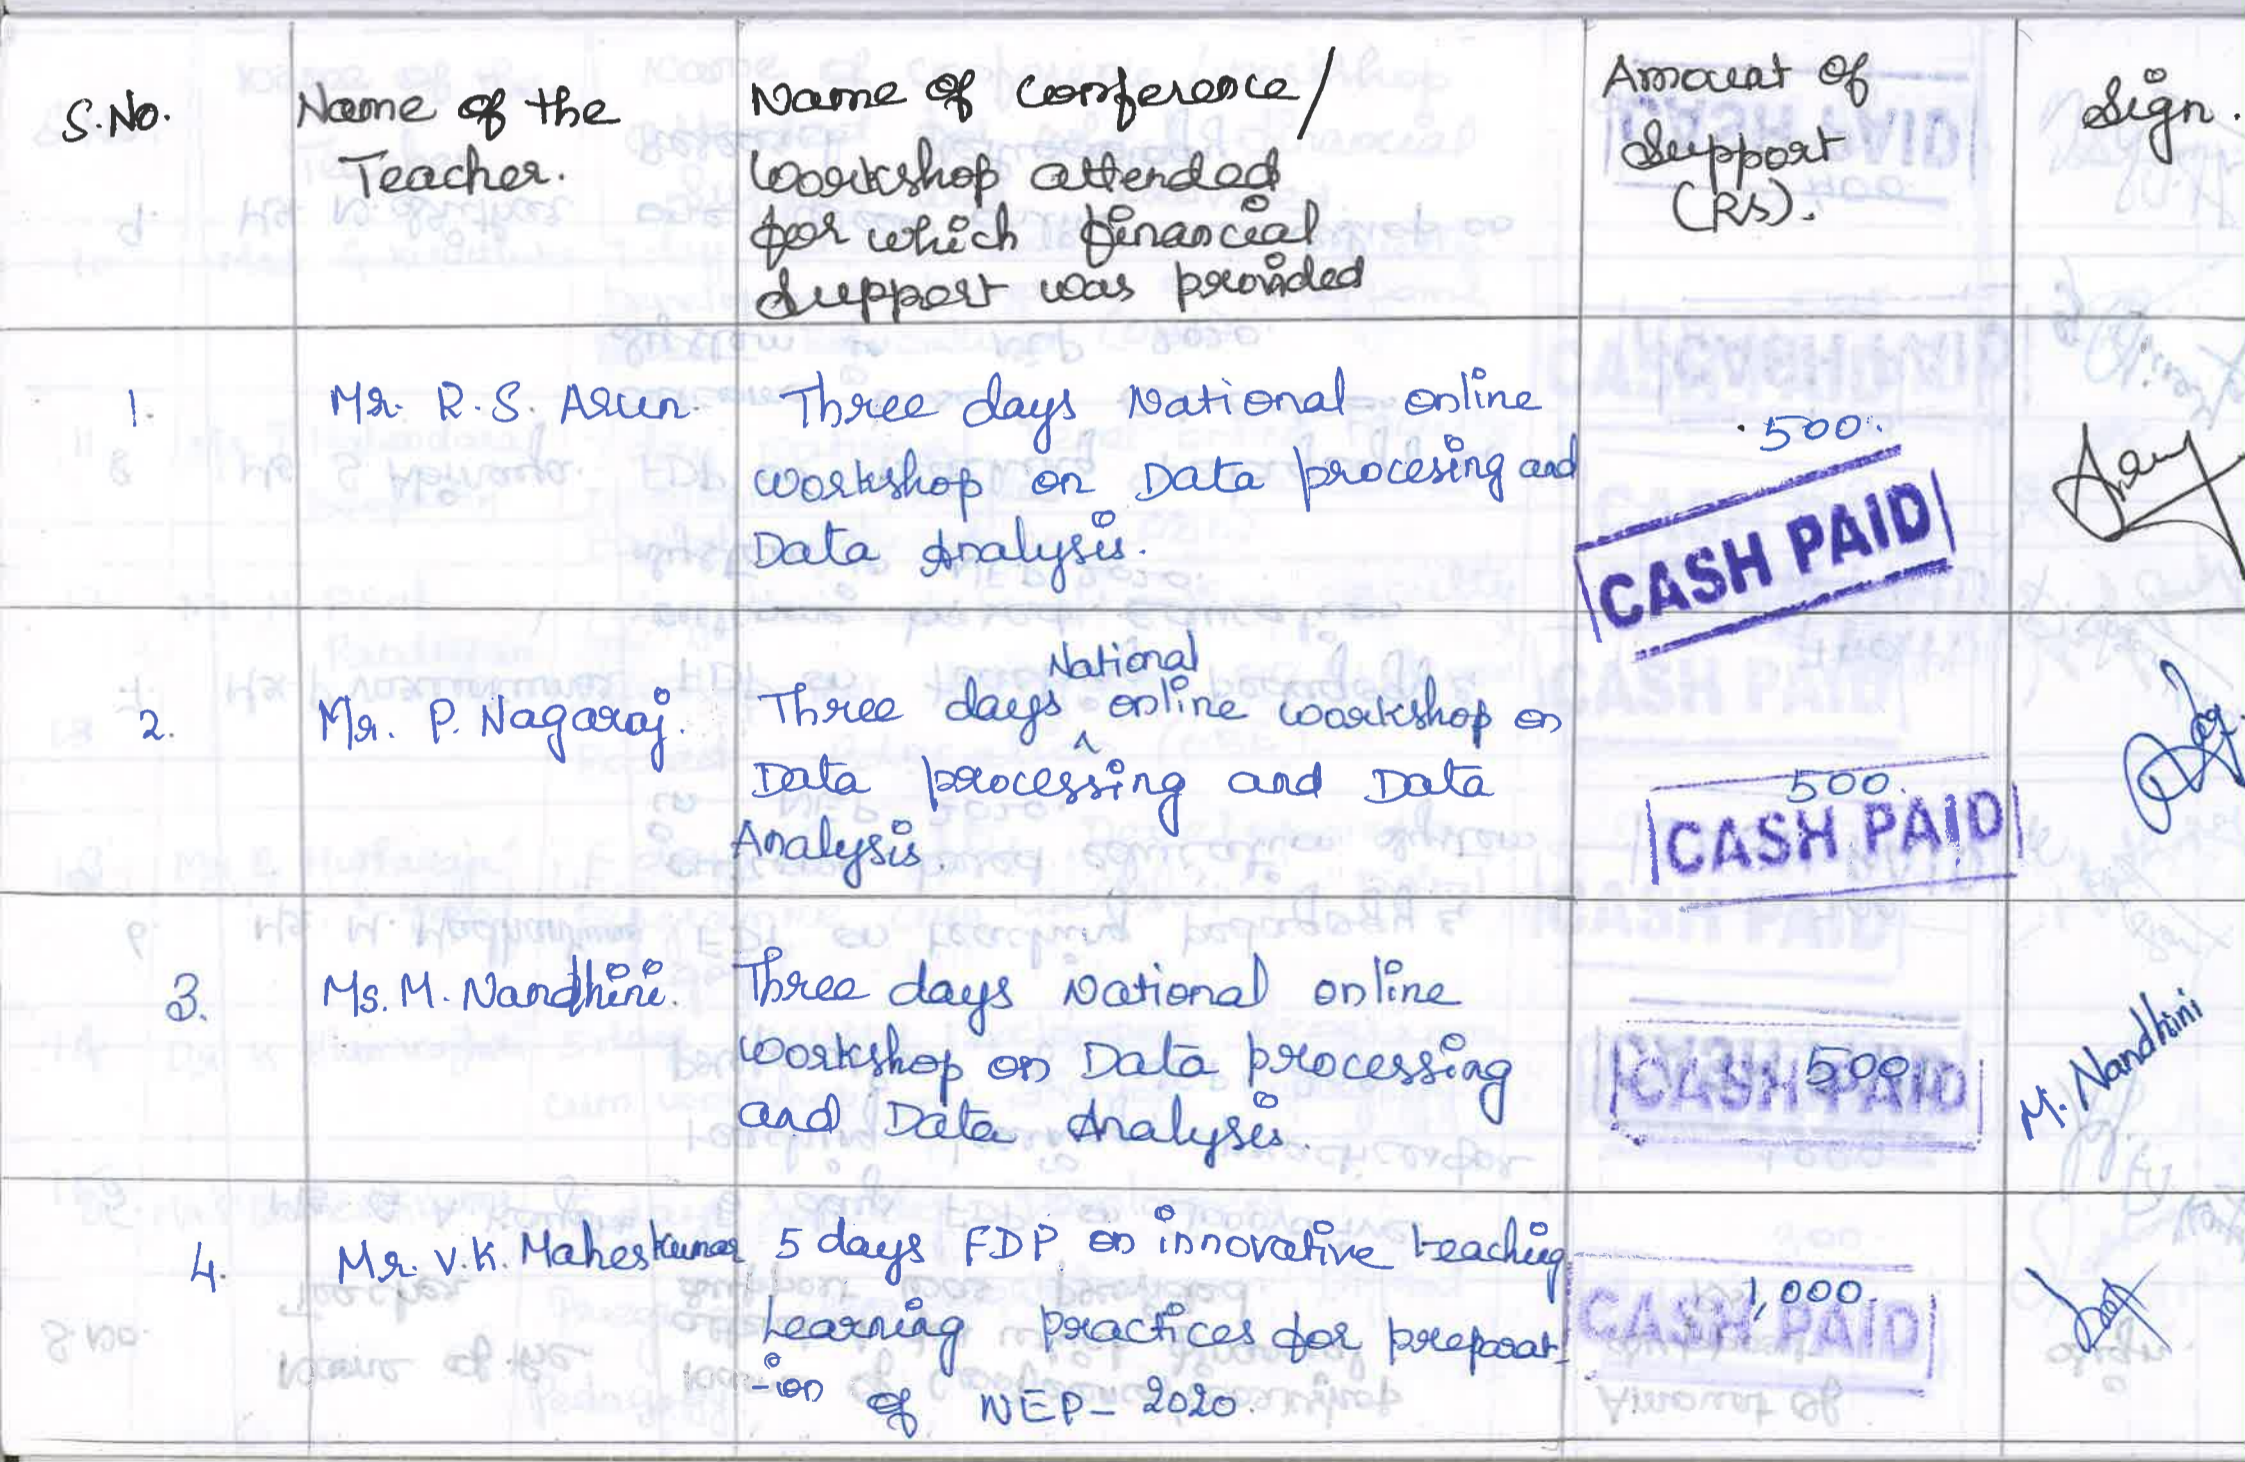 S.No.
Name of the
Teacher.
Name of conference/
workshop attended
for which financial
support was provided
Amount of
Support
(RS).
Sign.
1.
Mr. R.S. Arun.
Three days National online
workshop on Data procesing and
Data Analysis.
500.
CASH PAID
2.
Mr. P. Nagaraj.
National
Three days ^ online workshop on
Data processing and Data
Analysis.
500.
CASH PAID
3.
Ms. M. Nandhini.
Three days National online
workshop on Data processing
and Data Analysis.
500
CASH PAID
M. Nandhini
4.
Mr. V.K. Maheskumar
5 days FDP on innovative teaching
Learning practices for preparat-
-ion of NEP- 2020.
1,000.
CASH PAID